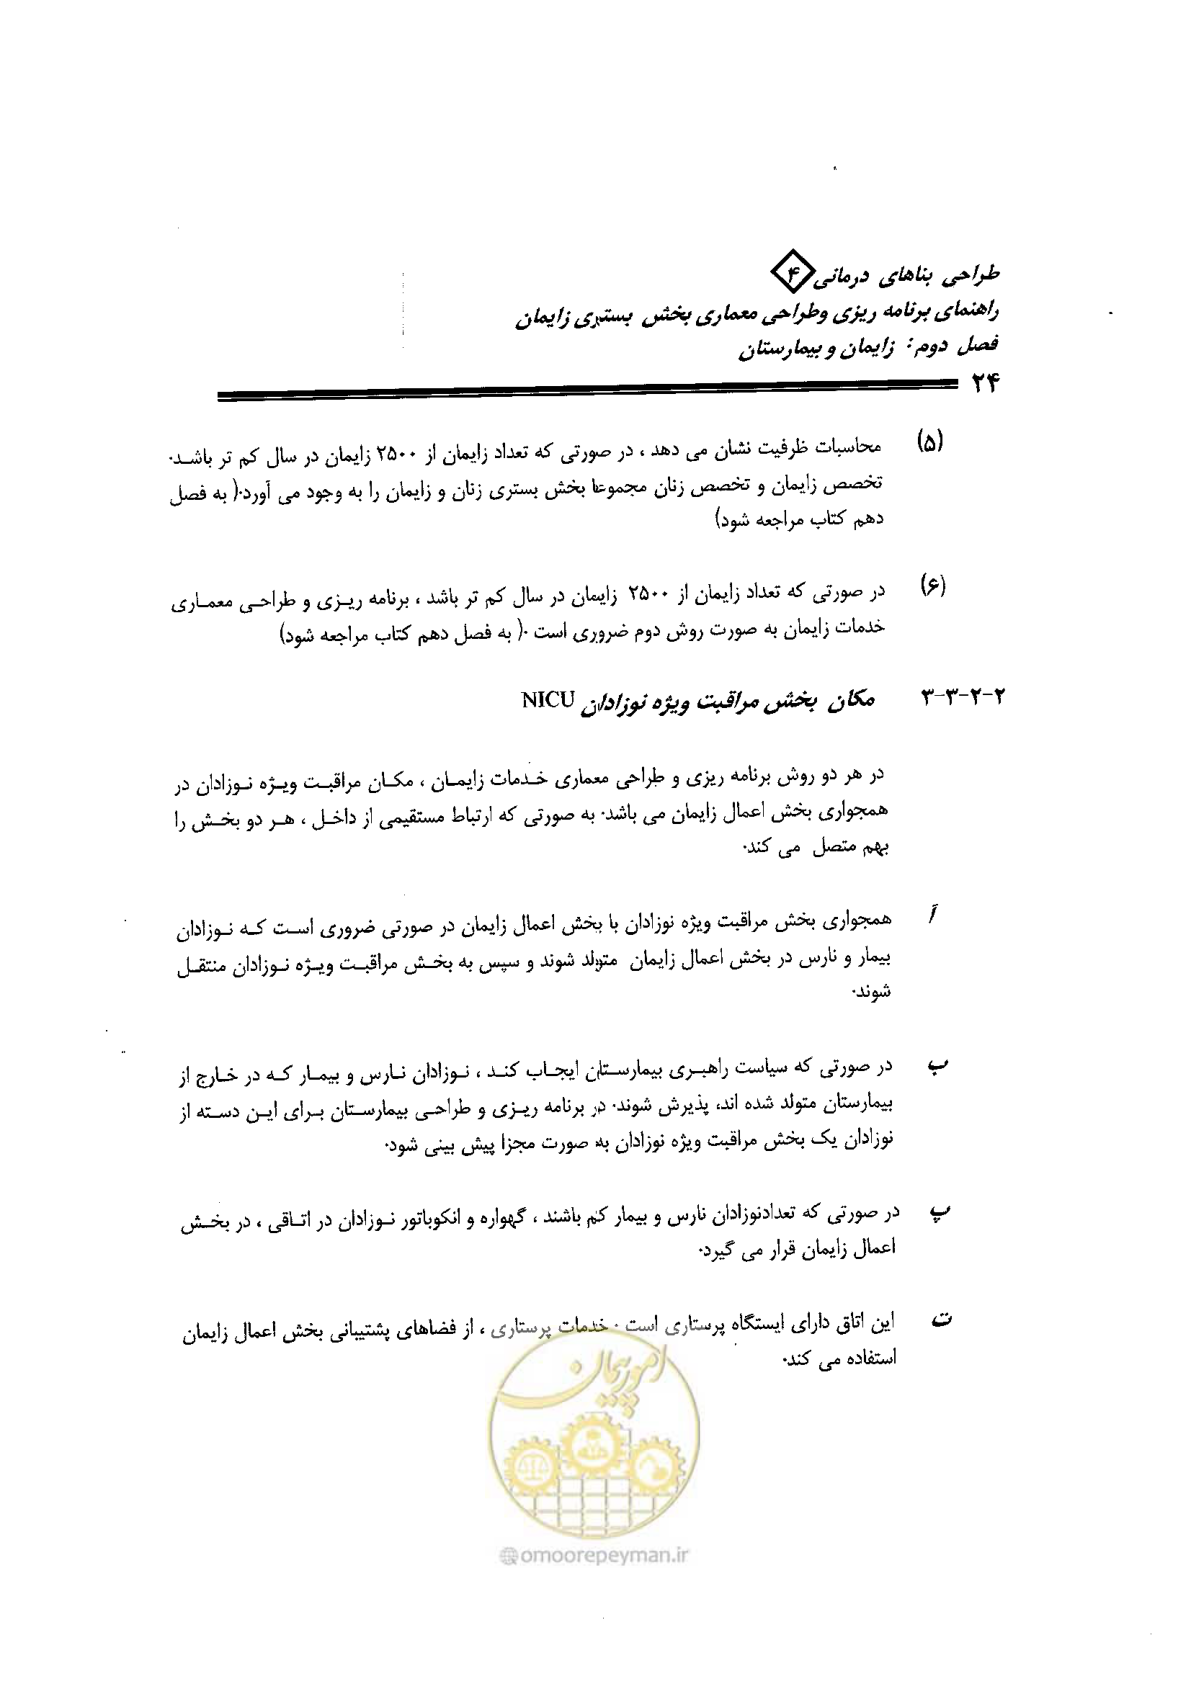 طراحی بناهای درمانی ۴
راهنمای برنامه ریزی وطراحی معماری بخش بستری زایمان
فصل دوم: زایمان و بیمارستان
۲۴
(۵) محاسبات ظرفیت نشان می دهد ، در صورتی که تعداد زایمان از ۲۵۰۰ زایمان در سال کم تر باشد.
تخصص زایمان و تخصص زنان مجموعا بخش بستری زنان و زایمان را به وجود می آورد.( به فصل
دهم کتاب مراجعه شود)
(۶) در صورتی که تعداد زایمان از ۲۵۰۰ زایمان در سال کم تر باشد ، برنامه ریزی و طراحی معماری
خدمات زایمان به صورت روش دوم ضروری است .( به فصل دهم کتاب مراجعه شود)
۳-۳-۲-۲ مکان بخش مراقبت ویژه نوزادان NICU
در هر دو روش برنامه ریزی و طراحی معماری خدمات زایمان ، مکان مراقبت ویژه نوزادان در
همجواری بخش اعمال زایمان می باشد. به صورتی که ارتباط مستقیمی از داخل ، هر دو بخش را
بهم متصل می کند.
آ همجواری بخش مراقبت ویژه نوزادان با بخش اعمال زایمان در صورتی ضروری است که نوزادان
بیمار و نارس در بخش اعمال زایمان متولد شوند و سپس به بخش مراقبت ویژه نوزادان منتقل
شوند.
ب در صورتی که سیاست راهبری بیمارستان ایجاب کند ، نوزادان نارس و بیمار که در خارج از
بیمارستان متولد شده اند، پذیرش شوند. در برنامه ریزی و طراحی بیمارستان برای این دسته از
نوزادان یک بخش مراقبت ویژه نوزادان به صورت مجزا پیش بینی شود.
پ در صورتی که تعدادنوزادان نارس و بیمار کم باشند ، گهواره و انکوباتور نوزادان در اتاقی ، در بخش
اعمال زایمان قرار می گیرد.
ت این اتاق دارای ایستگاه پرستاری است . خدمات پرستاری ، از فضاهای پشتیبانی بخش اعمال زایمان
استفاده می کند.
امور پیمان
omoorepeyman.ir